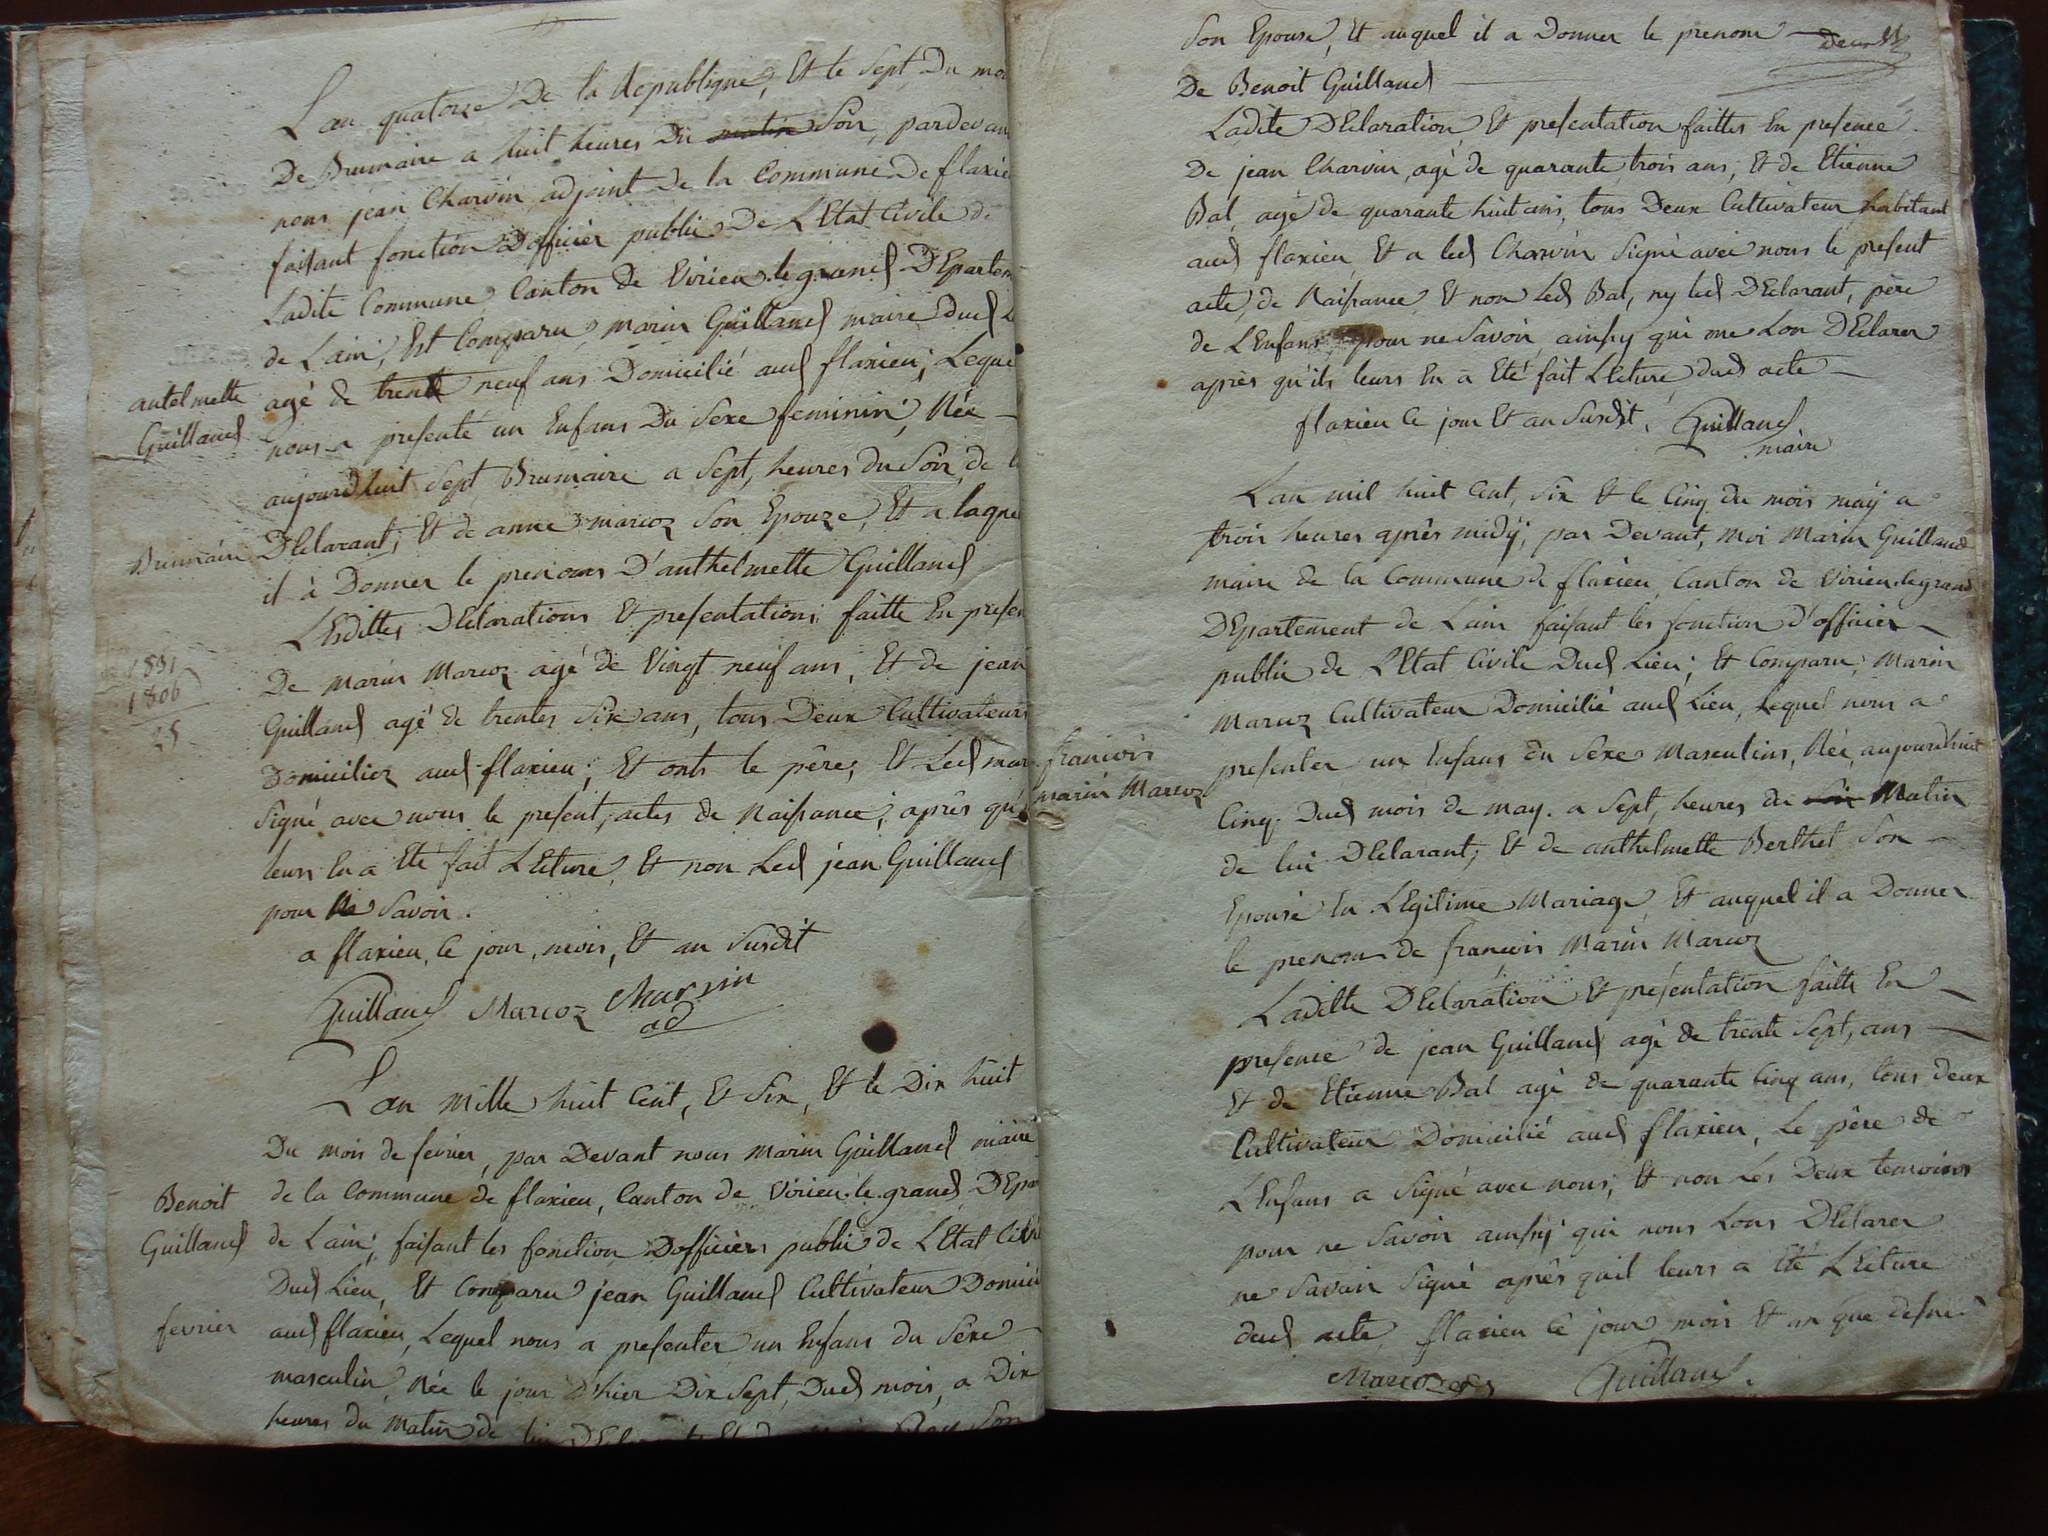 Lan quatorze De la Republique, Et le Sept Du moi
De Brumaire a huit heures Du matin Soir, pardevan
nous jean Charvin adjoint de la Commune De flaxie
faisant fonction D'officier public De L'Etat Civile de
Ladite Commune Canton de Virieu-le-grand DEpartem
de Lain; Est Comparu marin Guilland maire dud L
antelmette
Guilland
agé de trente neuf ans Domicilié aud flaxieu; Leque
nous a presenté un Enfans Du Sexe feminin; Née
aujourdhuit Sept Brumaire a Sept, heures du Soir, de
Brumaire
DEclarant; Et de anne marcoz Son Epouze, Et a laque
il à Donner le prenom D'anthelmette Guilland
LEsdittes DEclarations Et presentations faitte En presen
1831
1806
25
De Marin Marcoz agé de Vingt neuf ans, Et de jean
Guilland agé de trentes Six ans, tous Deux Cultivateurs
Domicilier aud flaxieu; Et onts le père; Et Led mar
Signé avec nous le present, actes de Naissance; après qu'
leurs En a Eté fait LEcture, Et non Led jean Guilland
pour Ne Savoir.
a flaxieu, le jour, mois, Et an Susdit
Guilland Marcoz Charvin
ad
Lan Mille huit Cent, Et Six, Et le Dix huit
Du mois de fevrier, par Devant nous Marin Guilland maire
Benoit
Guilland
de la Commune de flaxieu, Canton de Virieu-le-grand DEpar
de Lain; faisant les fonction Dofficiers public de L'Etat Civi
Dud Lieu, Et Comparu jean Guilland Cultivateur Domici
fevrier
aud flaxieu, Lequel nous a presenter un Enfans du Sexe
masculin, Née le jour d'hier Dix Sept, Dud mois, a Dix
heures du Matin de lui DEclarant Et de Roy Son
Son Epouse, Et auquel il a Donner le prenom
deux
De Benoit Guilland
Ladite DEclaration, Et presentation faittes En presence
De jean Charvin, agé de quarante trois ans, Et de Etienne
Bal, agé de quarante huit ans, tous Deux Cultivateur habitant
aud flaxieu, Et a led Charvin Signé avec nous le present
acte, de Naissance Et non Led Bal, ny led DEclarant, père
de LEnfans, pour ne Savoir, ainsy qui me Lon DEclarer
après qu'ils leurs En a Eté fait LEcture dud acte
flaxieu le jour Et an Susdit. Guilland
maire
Lan mil huit Cent, Six Et le Cinq du mois máy a
trois heures après midy, par Devant, Moi Marin Guilland
maire de la Commune de flaxieu, Canton de Virieu-le-grand
DEpartement de Lain faisant les fonction d'officier
public de L'Etat Civile Dud Lieu; Et Comparu; Marin
Marcoz Cultivateur Domicilié aud Lieu, Lequel nous a
francois
marin Marcoz
presenter un Enfans du Sexe Masculins, Née, aujourdhuit
Cinq Dud mois de may. a Sept, heures du Soir Matin
de lui DEclarant; Et de anthelmette Berthet Son
Epouse En LEgitime Mariage, Et auquel il a Donner
le prenom de francois Marin Marcoz
Laditte DEclaration Et presentation faitte En
presence de jean Guilland agé de trente Sept, ans
Et de Etienne Bal agé de quarante Cinq ans, tous deux
Cultivateur Domicilié aud flaxieu, Le père de
LEnfans a Signé avec nous; Et non Les Deux temoins
pour ne Savoir ainsy qui nous Lons DEclarer
ne Savoir Signé après quil leurs a Eté LEcture
dud acte, flaxieu le jour mois Et an que desus
Marcoz Guilland.